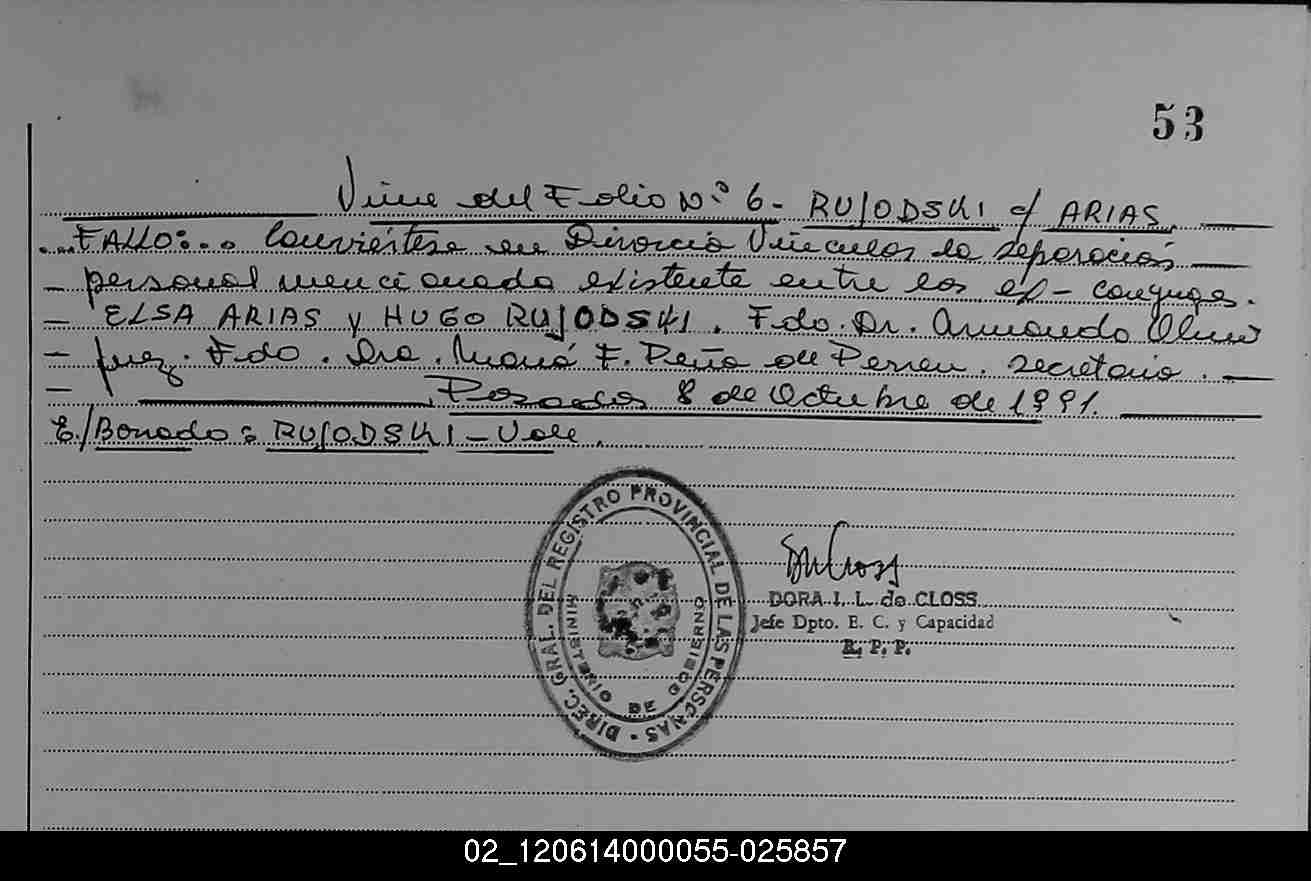 53
Viene del Folio N° 6 - RUJODSKI c/ ARIAS.
...FALLO:.. Conviértese en Divorcio Vincular la separación
- personal mencionada existente entre los ex-conyuges.
- ELSA ARIAS y HUGO RUJODSKI. Fdo. Dr. Armando
- Juez. Fdo. Dra. María F. Peña de Perreu. Secretario. -
- Posadas 8 de Octubre de 1991.
E./Borrado: RUJODSKI - Vale.
DIREC. GRAL. DEL REGISTRO PROVINCIAL DE LAS PERSONAS -
MINISTERIO DE GOBIERNO
DORA I. L. de CLOSS
Jefe Dpto. E. C. y Capacidad
R. P. P.
02_120614000055-025857